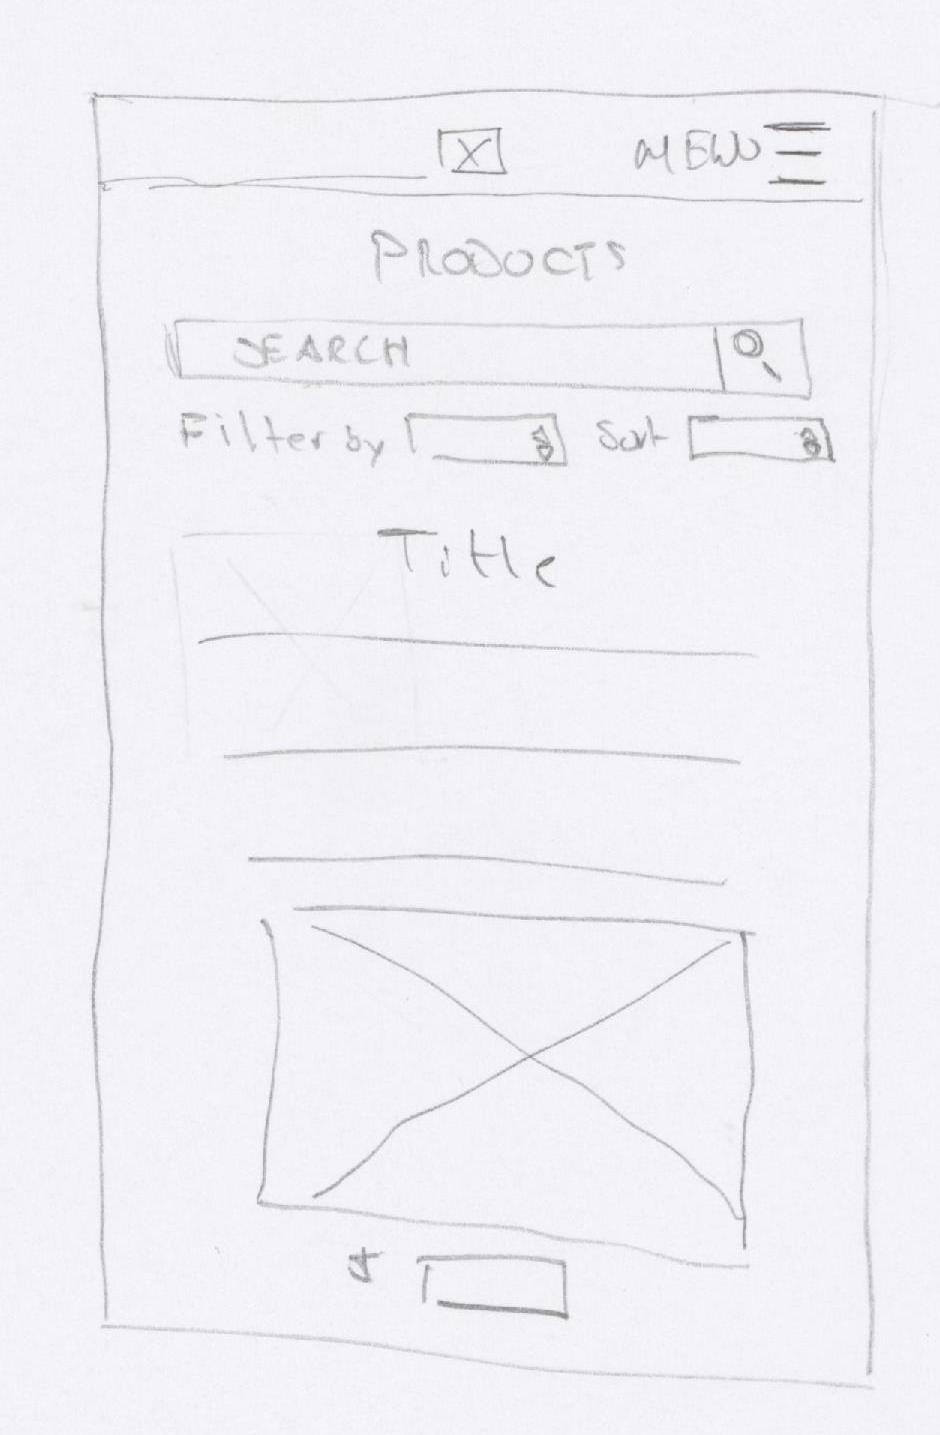 MENU
PRODUCTS
SEARCH
Filter by Sort
Title